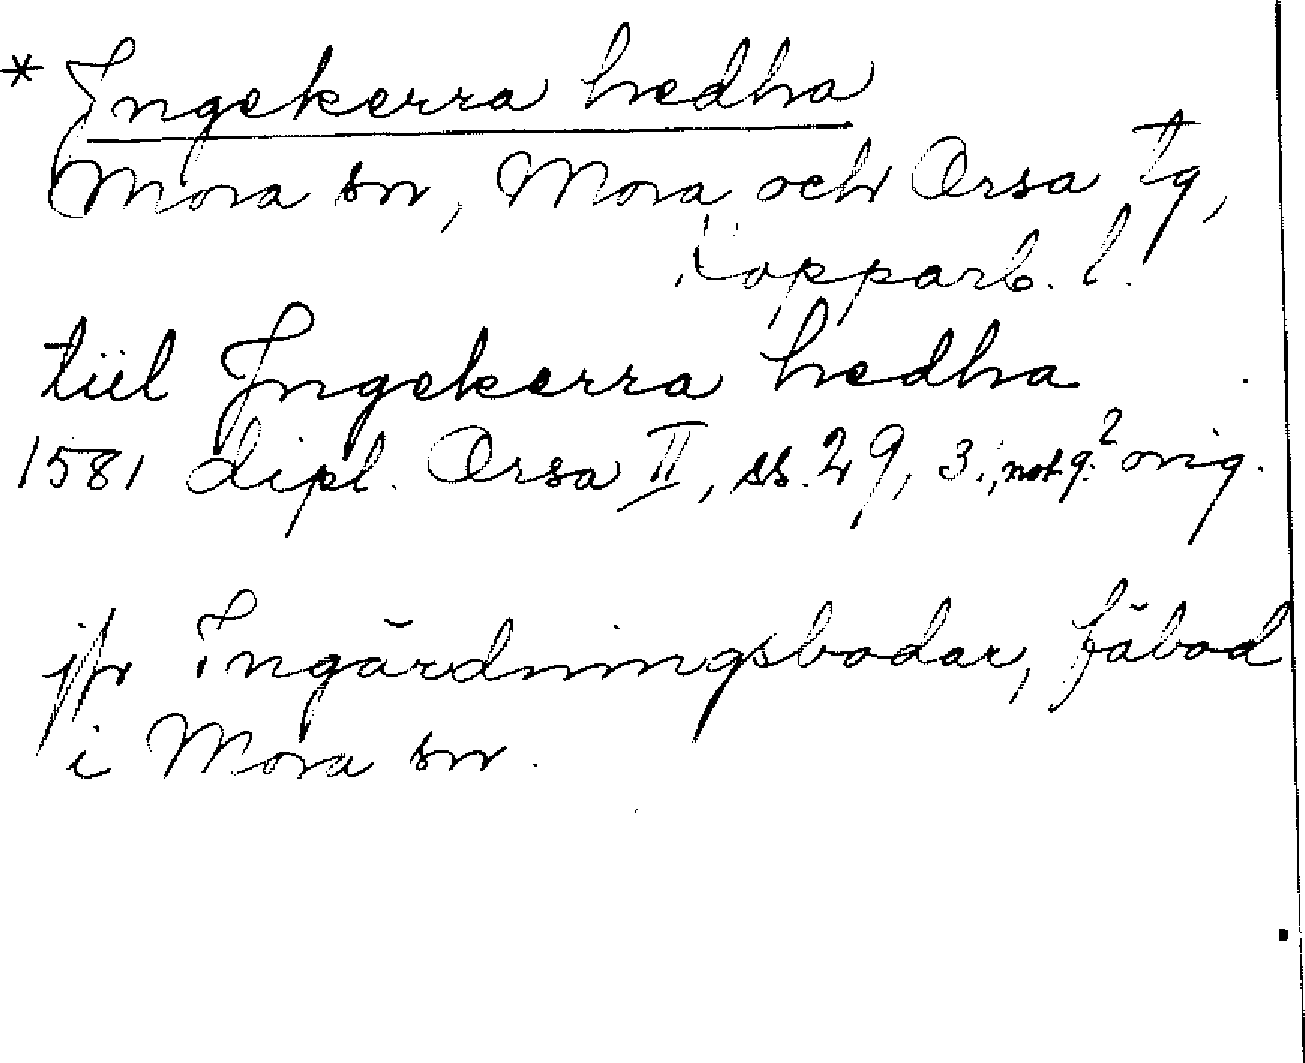 * Ingekerra hedha
Mora sn, Mora och Orsa tg,
Kopparb. l.
tiil Ingekerra hedha
1581 dipl. Orsa II, ss. 29, 3i, not 9.² orig.
jfr Ingärdningsbodar, fäbod
i Mora sn.